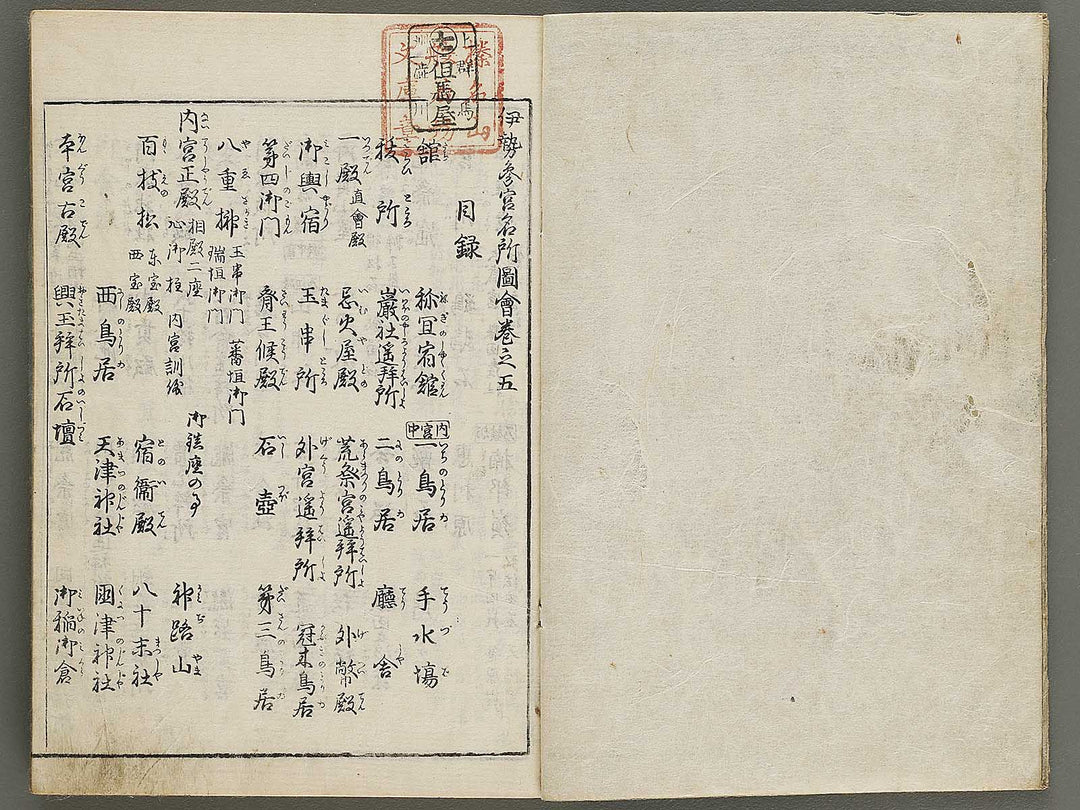 伊勢参宮名所圖會巻之五
目録
舘 祢宜宿舘 内宮中 一鳥居 手水場
祓所 巖社遥拜所 二鳥居 廳舎
一殿 直會殿 忌火屋殿 荒祭宮遥拜所 外幣殿
御輿宿 玉串所 外宮遥拜所 冠木鳥居
第四御門 齊王候殿 石壺 第三鳥居
八重榊 玉串御門 瑞垣御門 蕃垣御門
内宮正殿 相殿二座 心御柱 内宮訓儀 御鎮座の事 神路山
百枝松 東宝殿 西宝殿 宿衞殿 八十末社
西鳥居 天津神社 國津神社
本宮古殿 興玉拜所石壇 御稲御倉
七
但馬屋
上
群馬
澁川
榛名山
文庫章